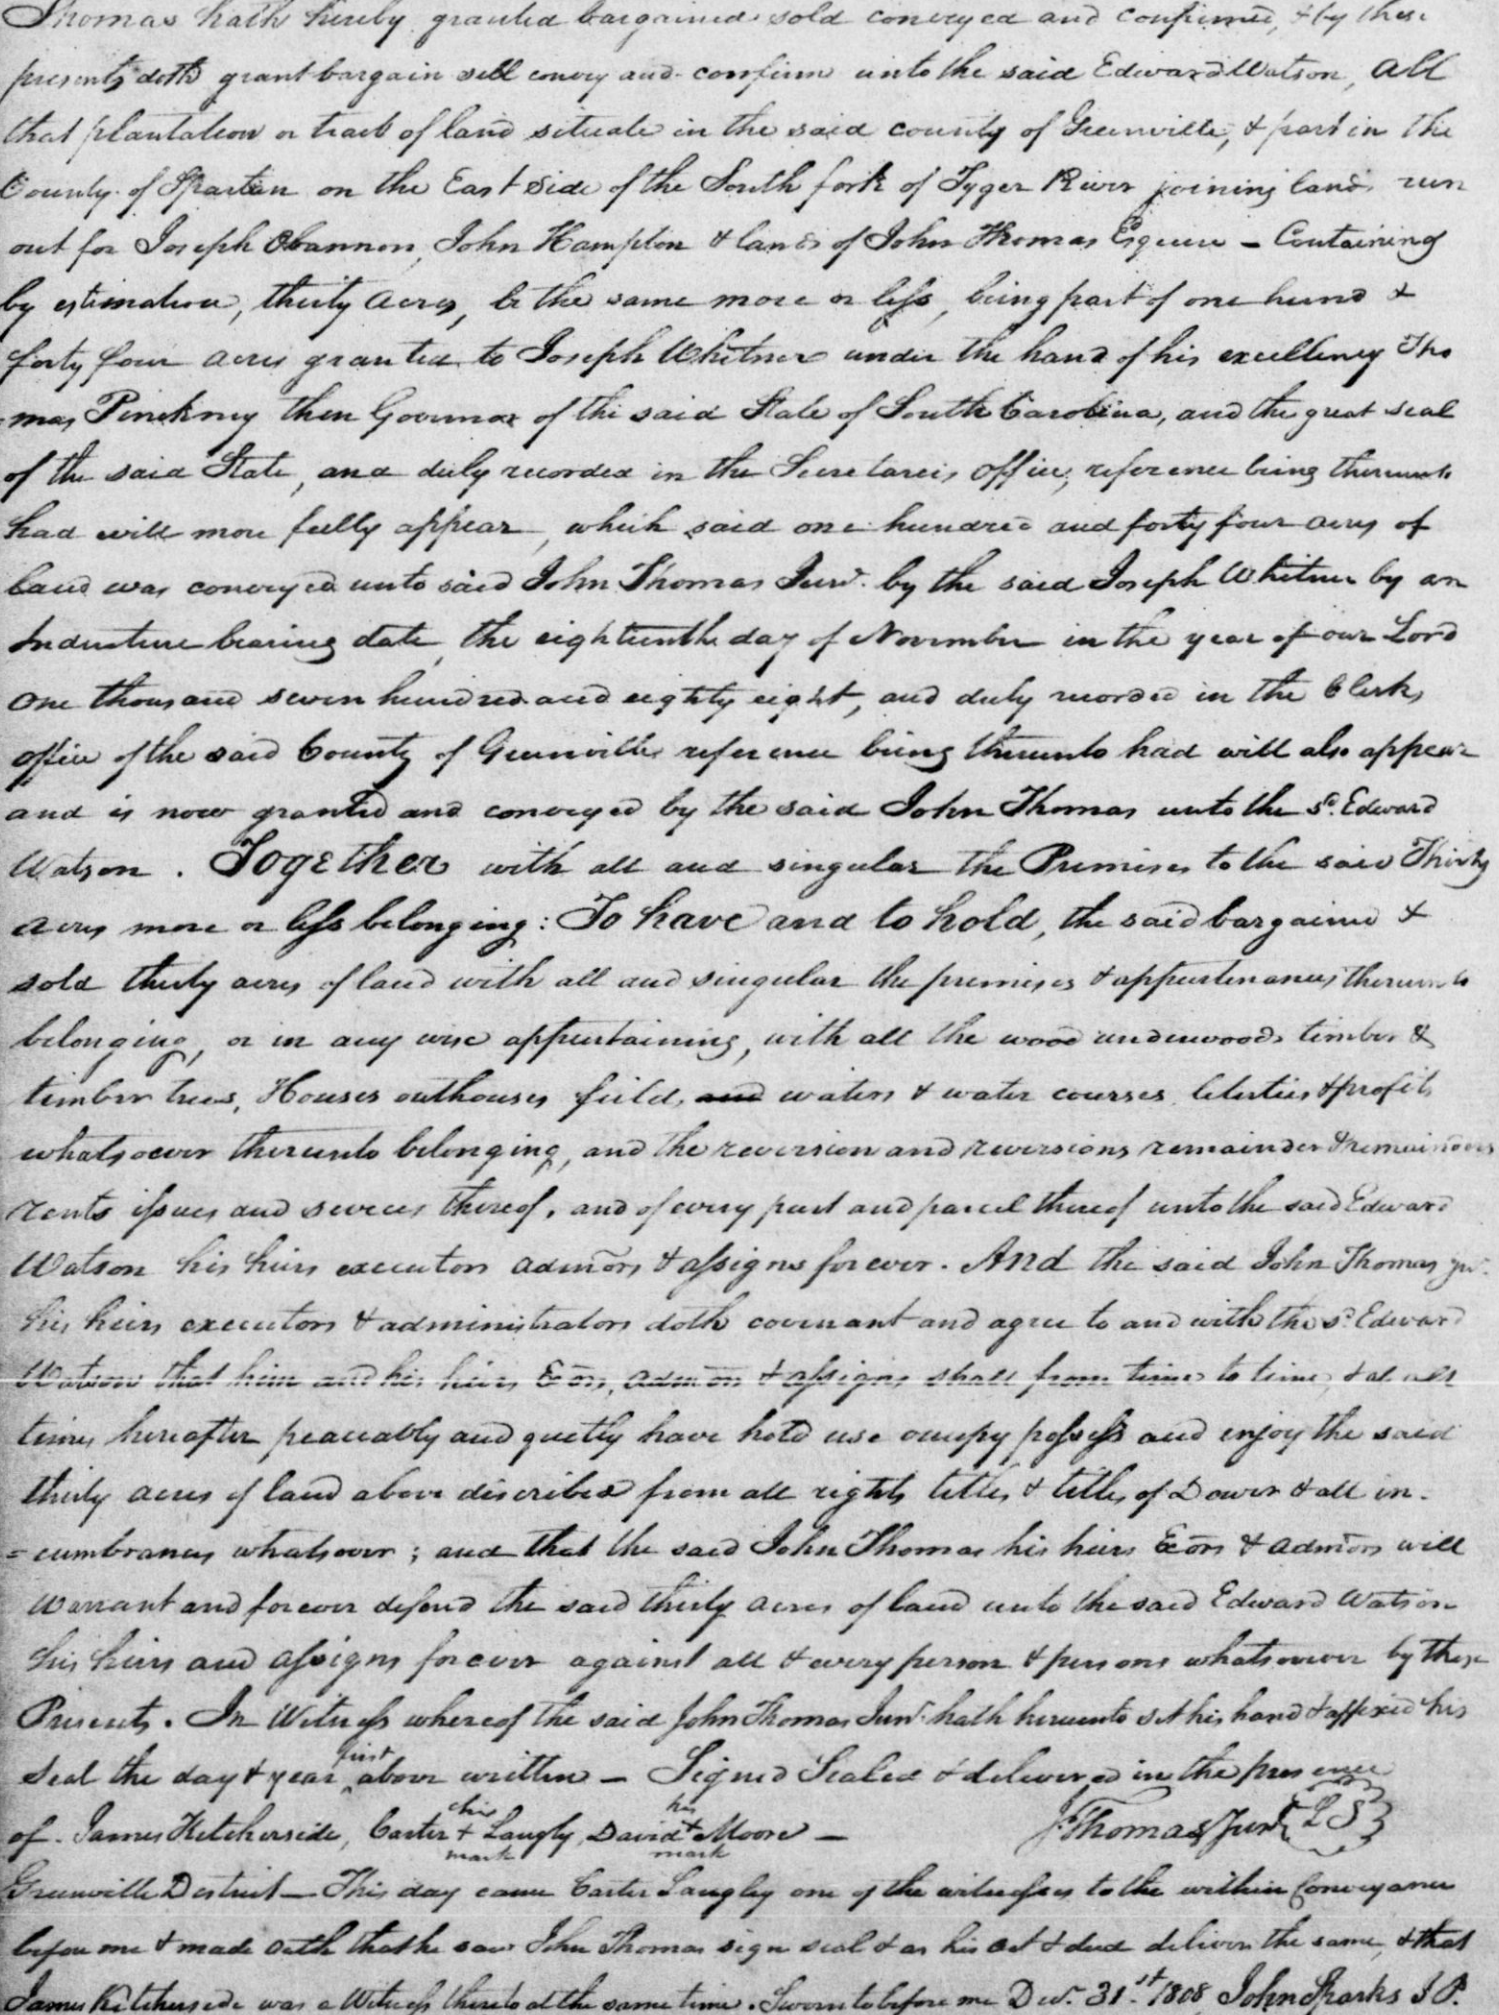 Thomas hath hereby granted bargained sold conveyed and confirmed, & by these
presents doth grant bargain sell convey and confirm unto the said Edward Watson, All
that plantation or tract of land situate in the said county of Greenville, & part in the
County of Spartan on the East Side of the South fork of Tyger River joining lands run
out for Joseph Obannon, John Hampton & lands of John Thomas Esquire – Containing
by estimation, thirty Acres, be the same more or less, being part of one hund &
forty four acres granted to Joseph Whitner under the hand of his excellency Tho
-mas Pinckney then Governor of the said State of South Carolina, and the great seal
of the said State, and duly recorded in the Secretaries office, reference being thereunto
had will more fully appear, which said one hundred and forty four acres of
land was conveyed unto said John Thomas Junr. by the said Joseph Whitner by an
Indenture bearing date, the eighteenth day of November in the year of our Lord
One thousand seven hundred and eighty eight, and duly recorded in the Clerks
office of the said County of Greenville reference being thereunto had will also appear
and is now granted and conveyed by the said John Thomas unto the sd. Edward
Watson. Together with all and singular the Premises to the said Thirty
Acres more or less belonging: To have and to hold, the said bargained &
sold thirty acres of land with all and singular the premises & appurtenances thereunto
belonging, or in any wise appurtaining, with all the wood underwoods timber &
timber trees, Houses outhouses fields, and waters & water courses liberties & profits
whatsoever thereunto belonging, and the reversion and reversions remainder & remainders
rents issues and services thereof, and of every part and parcel thereof unto the said Edward
Watson his heirs executors admors & assigns forever. And the said John Thomas Jur.
his heirs executors & administrators doth covenant and agree to and with the sd. Edward
Watson that him and his heirs Exors, admors & assigns shall from time to time, & at all
times hereafter peaceably and quietly have hold use occupy possess and enjoy the said
thirty acres of land above discribed from all rights titles & titles of Dower & all in-
=cumbrances whatsoever; and that the said John Thomas his heirs Exors & admors will
warrant and forever defend the said thirty acres of land unto the said Edward Watson
his heirs and assigns forever against all & every person & persons whatsoever by these
Presents. In Witness whereof the said John Thomas Junr. hath hereunto set his hand & affixed his
Seal the day & year first above written – Signed Sealed & delivered in the presence
of. James Hitcherside, Carter his + mark Langly, David his + mark Moore – J Thomas Junr L S
Greenville District – This day came Carter Langley one of the witnesses to the within Conveyance
before me & made oath that he saw John Thomas sign seal & as his act & deed deliver the same, & that
James Kitcherside was a Witness thereto at the same time. Sworn to before me Decr. 31st. 1808 John Sparks J. P.